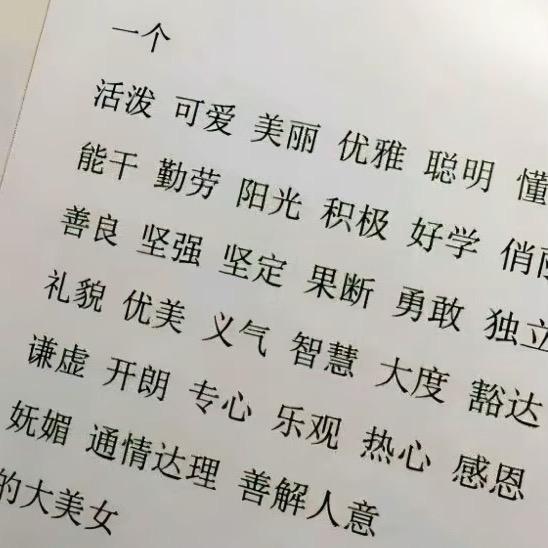 一个
活泼 可爱 美丽 优雅 聪明 懂
能干 勤劳 阳光 积极 好学 俏
善良 坚强 坚定 果断 勇敢 独立
礼貌 优美 义气 智慧 大度 豁达
谦虚 开朗 专心 乐观 热心 感恩
妩媚 通情达理 善解人意
的大美女